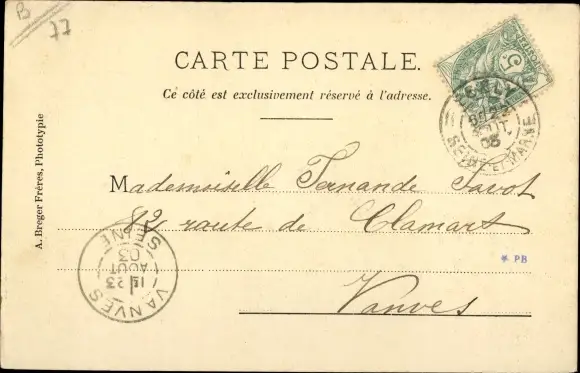 B
77
CARTE POSTALE.
Ce côté est exclusivement réservé à l'adresse.
5
SEINE-ET-MARNE
Mademoiselle Fernande Savot
12 route de Clamart
Vanves
VANVES
SEINE
23
AOUT
03
* PB
A. Breger Frères, Phototypie